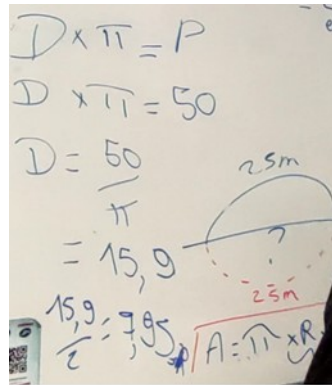 D × π = P
D × π = 50
D = 50 / π
= 15,9
25m
?
25m
15,9 / 2 = 7,95
A = π × R